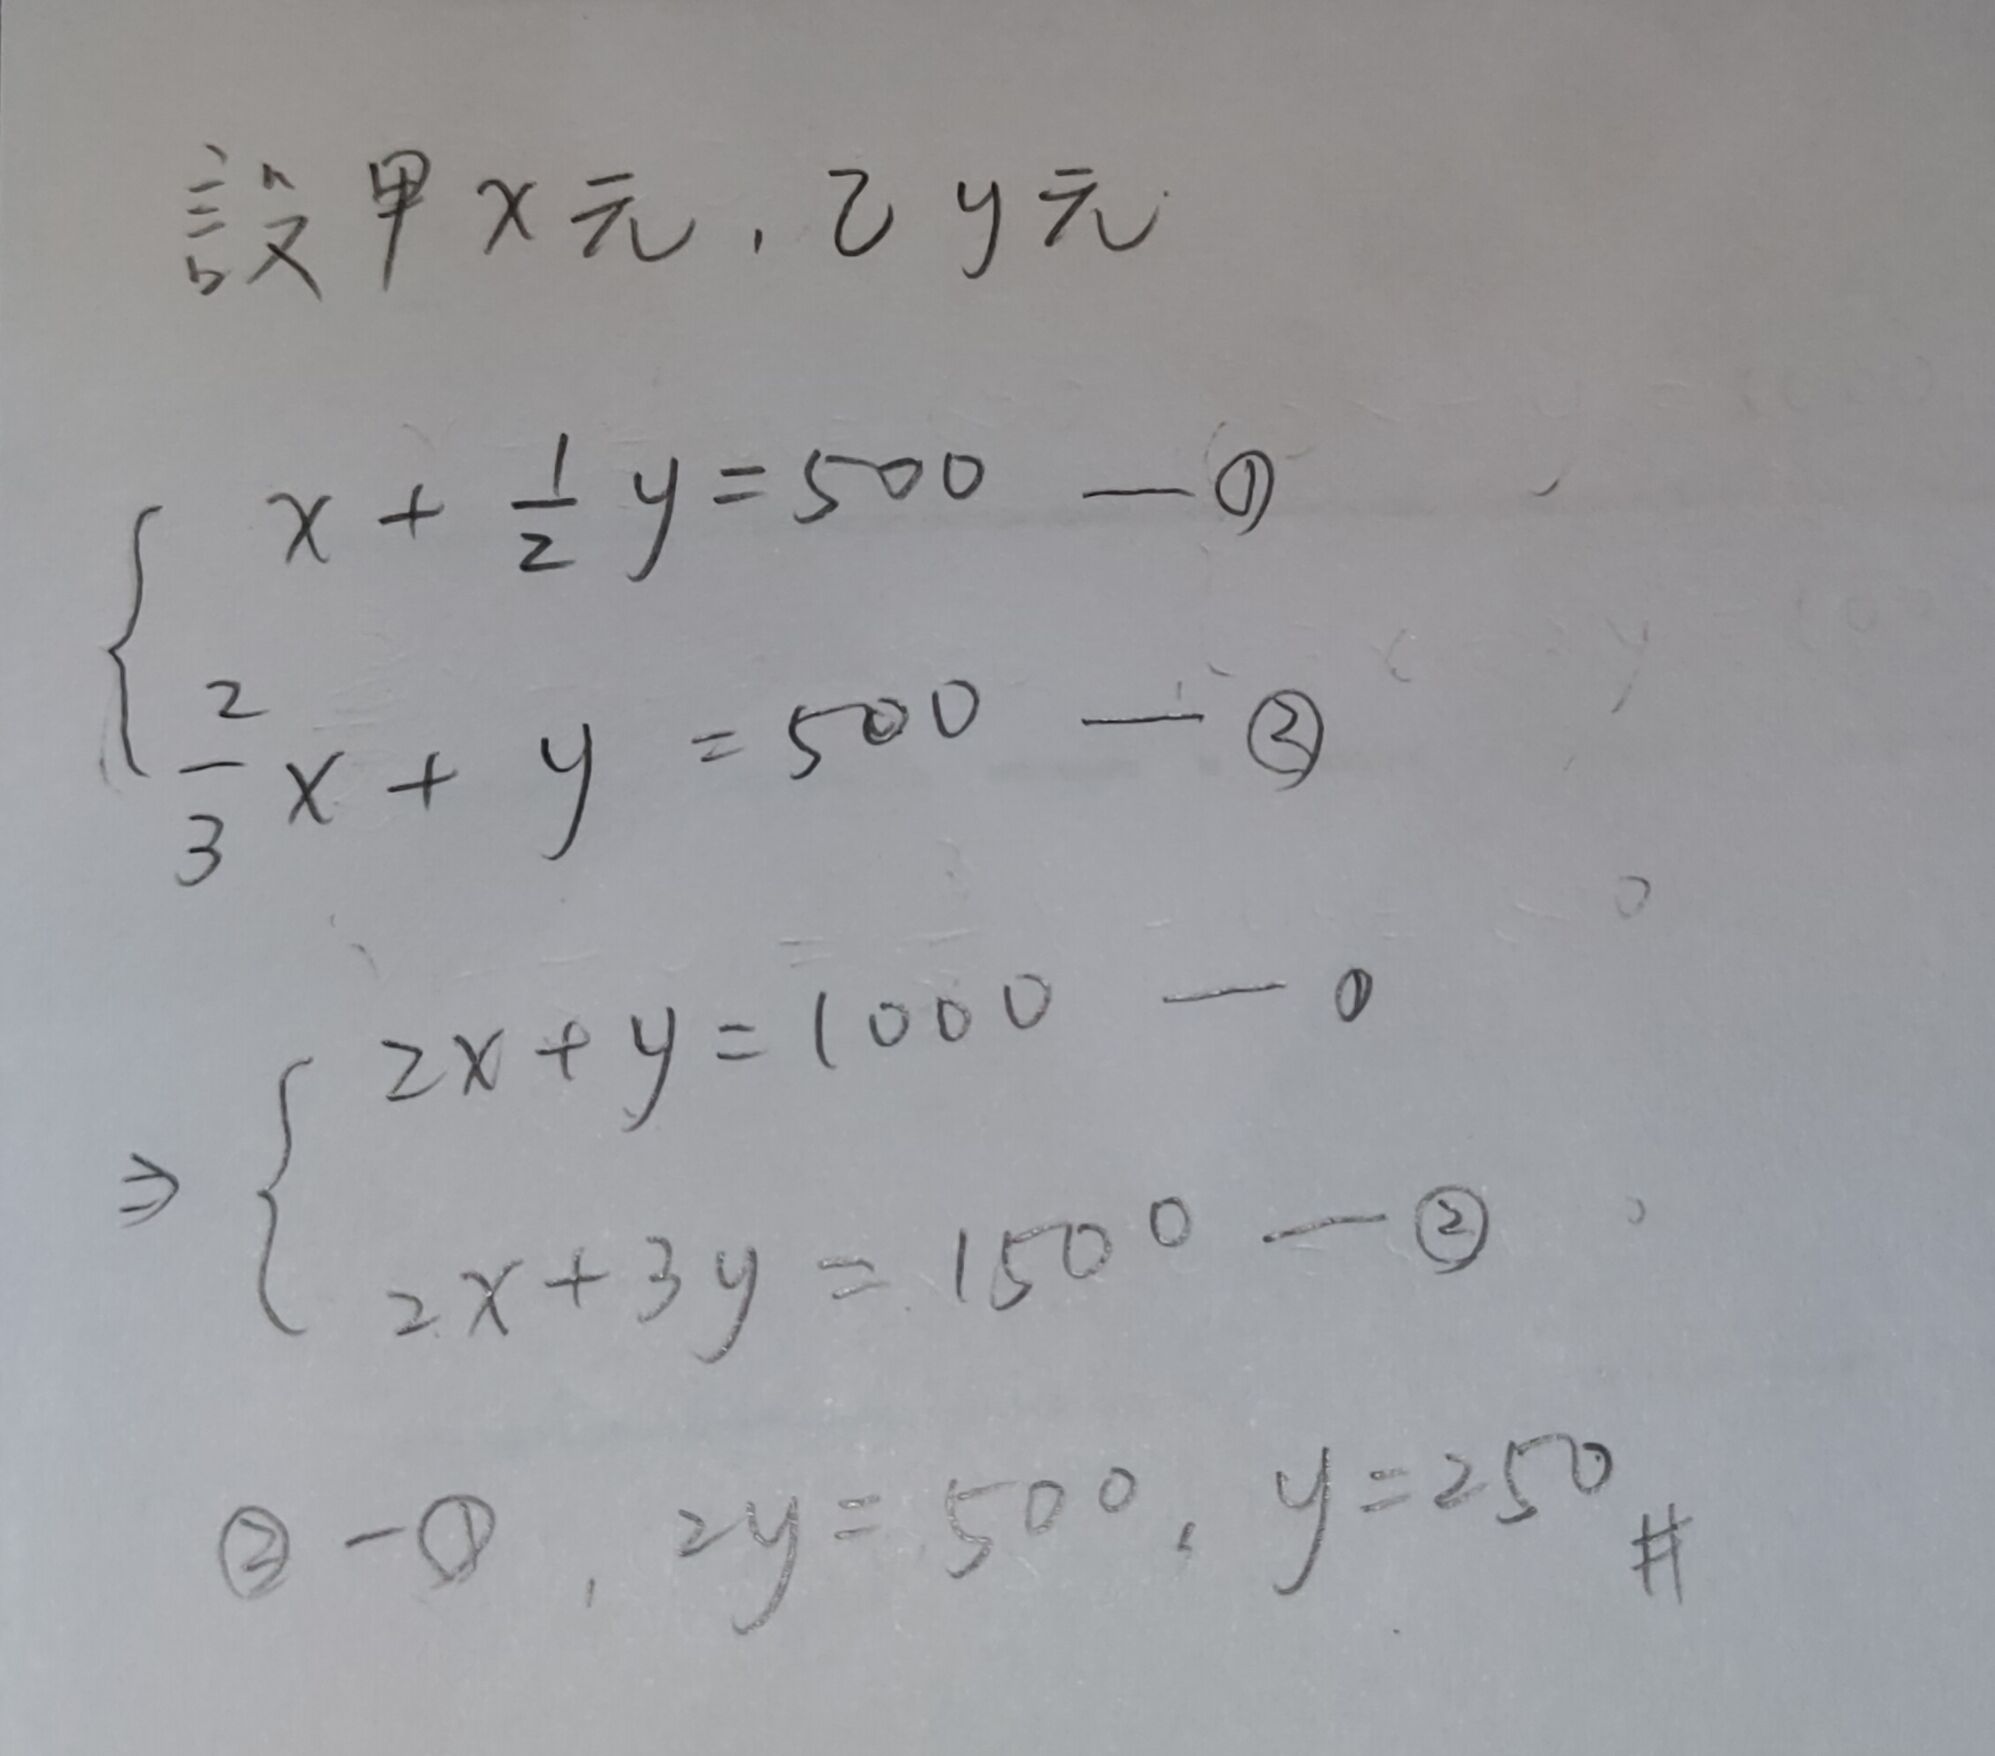 設甲x元,乙y元
x + 1/2 y = 500 — ①
2/3 x + y = 500 — ②
2x + y = 1000 — ①
⇒
2x + 3y = 1500 — ②
② - ① , 2y = 500 , y = 250 #